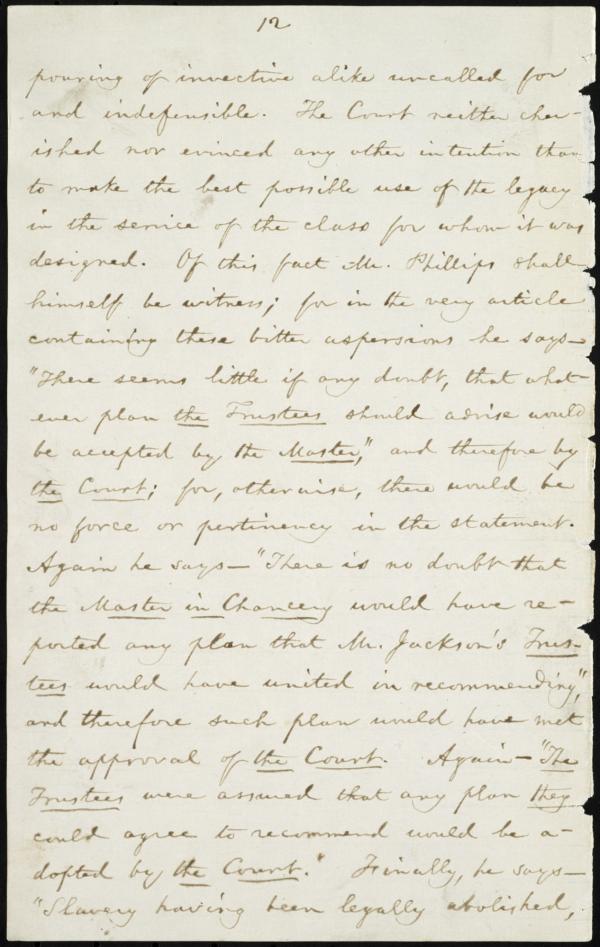 12
pouring of invective alike uncalled for
and indefensible. The Court neither cher-
ished nor evinced any other intention than
to make the best possible use of the legacy
in the service of the class for whom it was
designed. Of this fact Mr. Phillips shall
himself be witness; for in the very article
containing these bitter aspersions he says—
"There seems little if any doubt, that what-
ever plan the Trustees should advise would
be accepted by the Master," and therefore by
the Court; for, otherwise, there would be
no force or pertinency in the statement.
Again he says—"There is no doubt that
the Master in Chancery would have re-
ported any plan that Mr. Jackson's Trus-
tees would have united in recommending",
and therefore such plan would have met
the approval of the Court. Again—"The
Trustees were assured that any plan they
could agree to recommend would be a-
dopted by the Court." Finally, he says—
"Slavery having been legally abolished,